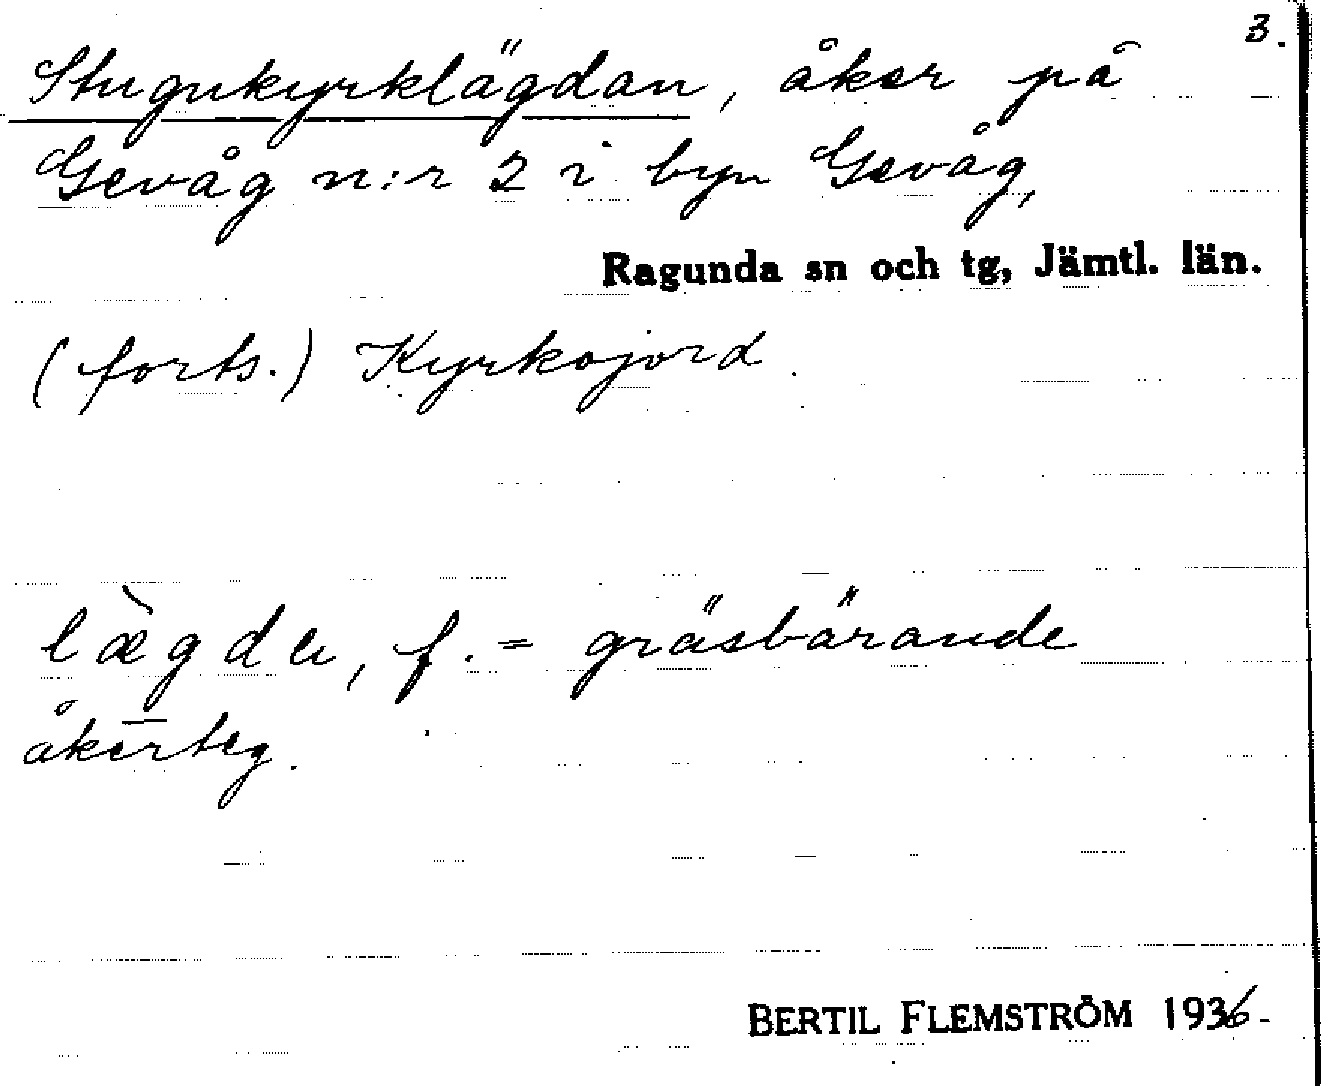 3.
Stugukyrklägdan, åker på
Gevåg n:r 2 i byn Gevåg,
Ragunda sn och tg, Jämtl. län.
(forts.) Kyrkojord.
læ̀gda, f. = gräsbärande
åkerteg.
BERTIL FLEMSTRÖM 1936-